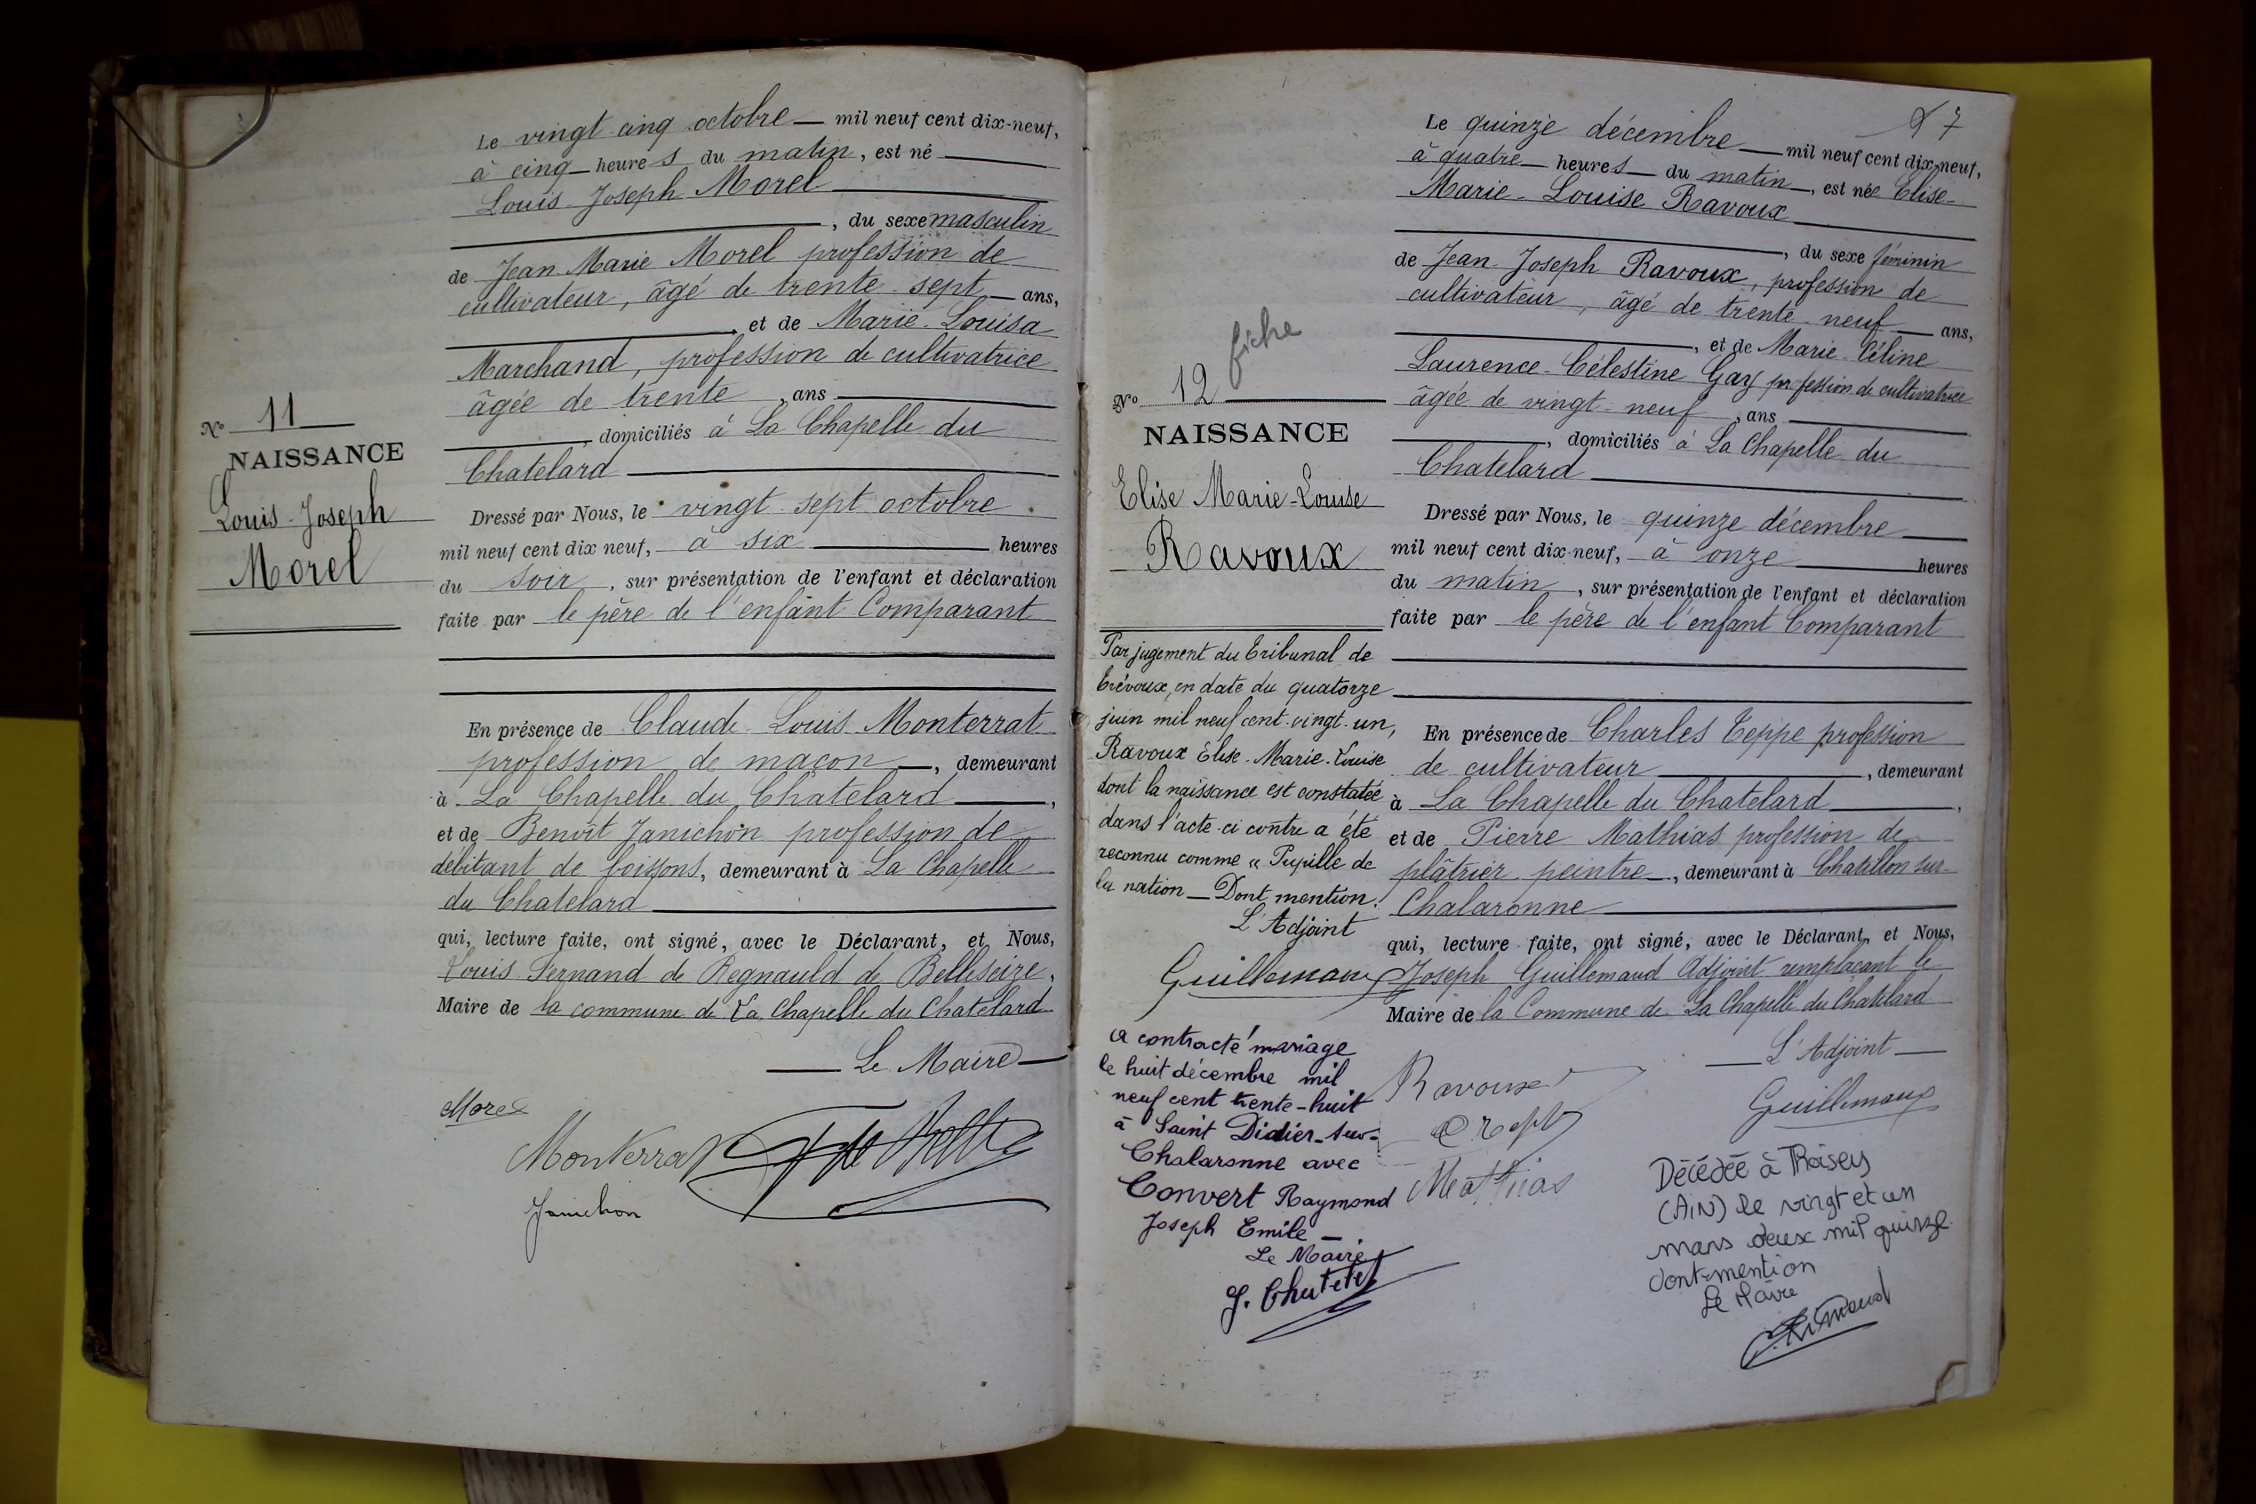 Le vingt cinq octobre mil neuf cent dix-neuf,
à cinq heures du matin, est né
Louis Joseph Morel
, du sexe masculin
de Jean Marie Morel profession de
cultivateur, âgé de trente sept ans,
, et de Marie-Louisa
Marchand, profession de cultivatrice
âgée de trente, ans
, domiciliés à La Chapelle du
Chatelard
N° 11
NAISSANCE
Louis-Joseph
Morel
Dressé par Nous, le vingt sept octobre
mil neuf cent dix neuf, à six heures
du soir, sur présentation de l'enfant et déclaration
faite par le père de l'enfant Comparant
En présence de Claude Louis Monterrat
profession de maçon, demeurant
à La Chapelle du Chatelard,
et de Benoît Janichon profession de
débitant de boissons, demeurant à La Chapelle
du Chatelard
qui, lecture faite, ont signé, avec le Déclarant, et Nous,
Louis Fernand de Regnauld de Bellescize,
Maire de la commune de La Chapelle du Chatelard
Le Maire
Morel
Monterrat
Janichon
7
Le quinze décembre mil neuf cent dix-neuf,
à quatre heures du matin, est née Elise
Marie-Louise Ravoux
, du sexe féminin
de Jean Joseph Ravoux, profession de
cultivateur, âgé de trente neuf ans,
, et de Marie-Céline
Laurence-Célestine Gay profession de cultivatrice
âgée de vingt-neuf, ans
, domiciliés à La Chapelle du
Chatelard
fiche
N° 12
NAISSANCE
Elise Marie-Louise
Ravoux
Dressé par Nous, le quinze décembre
mil neuf cent dix-neuf, à onze heures
du matin, sur présentation de l'enfant et déclaration
faite par le père de l'enfant Comparant
En présence de Charles Teppe profession
de cultivateur, demeurant
à La Chapelle du Chatelard,
et de Pierre Mathias profession de
plâtrier peintre, demeurant à Chatillon sur
Chalaronne
qui, lecture faite, ont signé, avec le Déclarant, et Nous,
Joseph Guillemaud Adjoint remplaçant le
Maire de la Commune de La Chapelle du Chatelard
L'Adjoint
Guillemaud
Ravoux
Mathias
Par jugement du Tribunal de
Trévoux, en date du quatorze
juin mil neuf cent vingt-un,
Ravoux Elise-Marie-Louise
dont la naissance est constatée
dans l'acte ci contre a été
reconnu comme « Pupille de
la nation — Dont mention.
L'Adjoint
Guillemaud
a contracté mariage
le huit décembre mil
neuf cent trente-huit
à Saint Didier-sur-
Chalaronne avec
Convert Raymond
Joseph Emile —
Le Maire
J. Chatelet
Décédée à Thoissey
(AIN) le vingt et un
mars deux mil quinze
dont mention
Le Maire